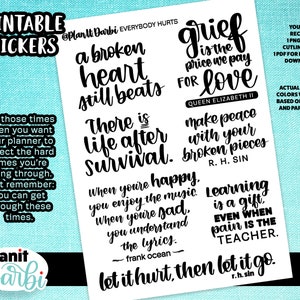 PRINTABLE
STICKERS
@PlanIt Darbi EVERYBODY HURTS
a broken
heart
still beats
grief
is the
price we pay
FOR love
QUEEN ELIZABETH II
There is
life after
survival.
make peace
with your
broken pieces.
R. H. SIN
when you're happy,
you enjoy the music.
When you're sad,
you understand
the lyrics.
frank ocean
Learning
is a gift,
EVEN WHEN
PAIN IS THE
TEACHER.
let it hurt, then let it go.
r.h. sin
those times
when you want
your planner to
reflect the hard
times you're
going through.
Just remember:
you can get
through these
times.
planit
darbi
YOU
1 PDF FOR
DOWN
ACTUAL
COLORS
BASED O
AND PA